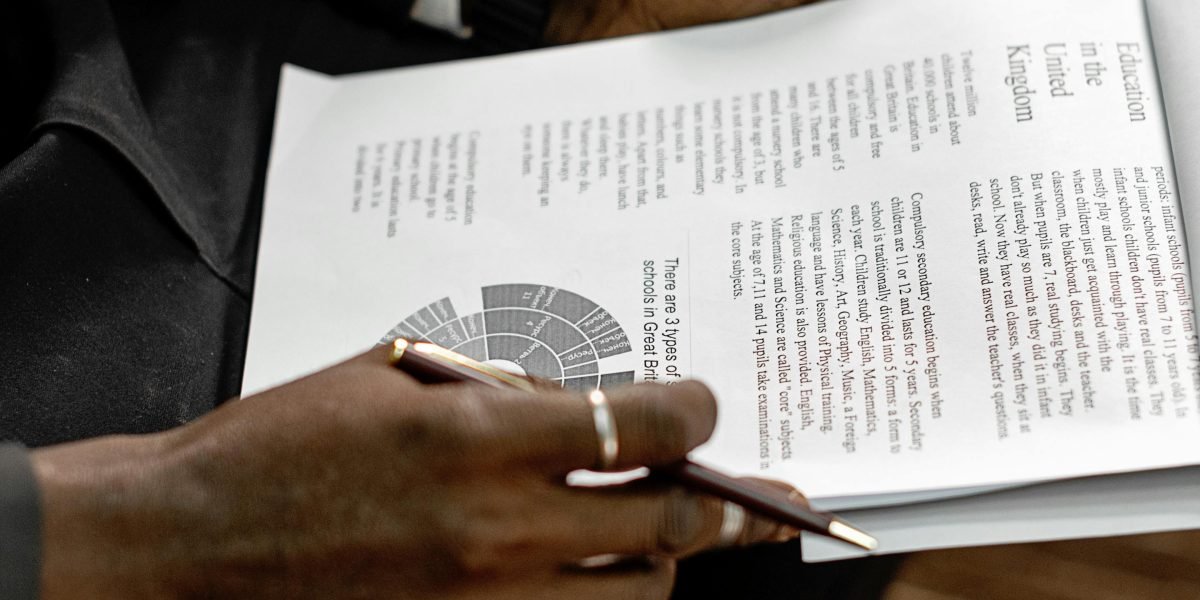 Education
in the
United
Kingdom
Twelve million
children attend about
40,000 schools in
Britain. Education in
Great Britain is
compulsory and free
for all children
between the ages of 5
and 16. There are
many children who
attend a nursery school
from the age of 3, but
it is not compulsory. In
nursery schools they
learn some elementary
things such as
numbers, colours, and
letters. Apart from that,
babies play, have lunch
and sleep there.
Whatever they do,
there is always
someone keeping an
eye on them.
Compulsory education
begins at the age of 5
when children go to
primary school.
Primary education lasts
for 6 years. It is
divided into two
periods: infant schools (pupils from 5 to 7 years
and junior schools (pupils from 7 to 11 years old). In
infant schools children don't have real classes. They
mostly play and learn through playing. It is the time
when children just get acquainted with the
classroom, the blackboard, desks and the teacher.
But when pupils are 7, real studying begins. They
don't already play so much as they did it in infant
school. Now they have real classes, when they sit at
desks, read, write and answer the teacher's questions.
Compulsory secondary education begins when
children are 11 or 12 and lasts for 5 years. Secondary
school is traditionally divided into 5 forms: a form to
each year. Children study English, Mathematics,
Science, History, Art, Geography, Music, a Foreign
language and have lessons of Physical training.
Religious education is also provided. English,
Mathematics and Science are called "core" subjects.
At the age of 7,11 and 14 pupils take examinations in
the core subjects.
There are 3 types of
schools in Great